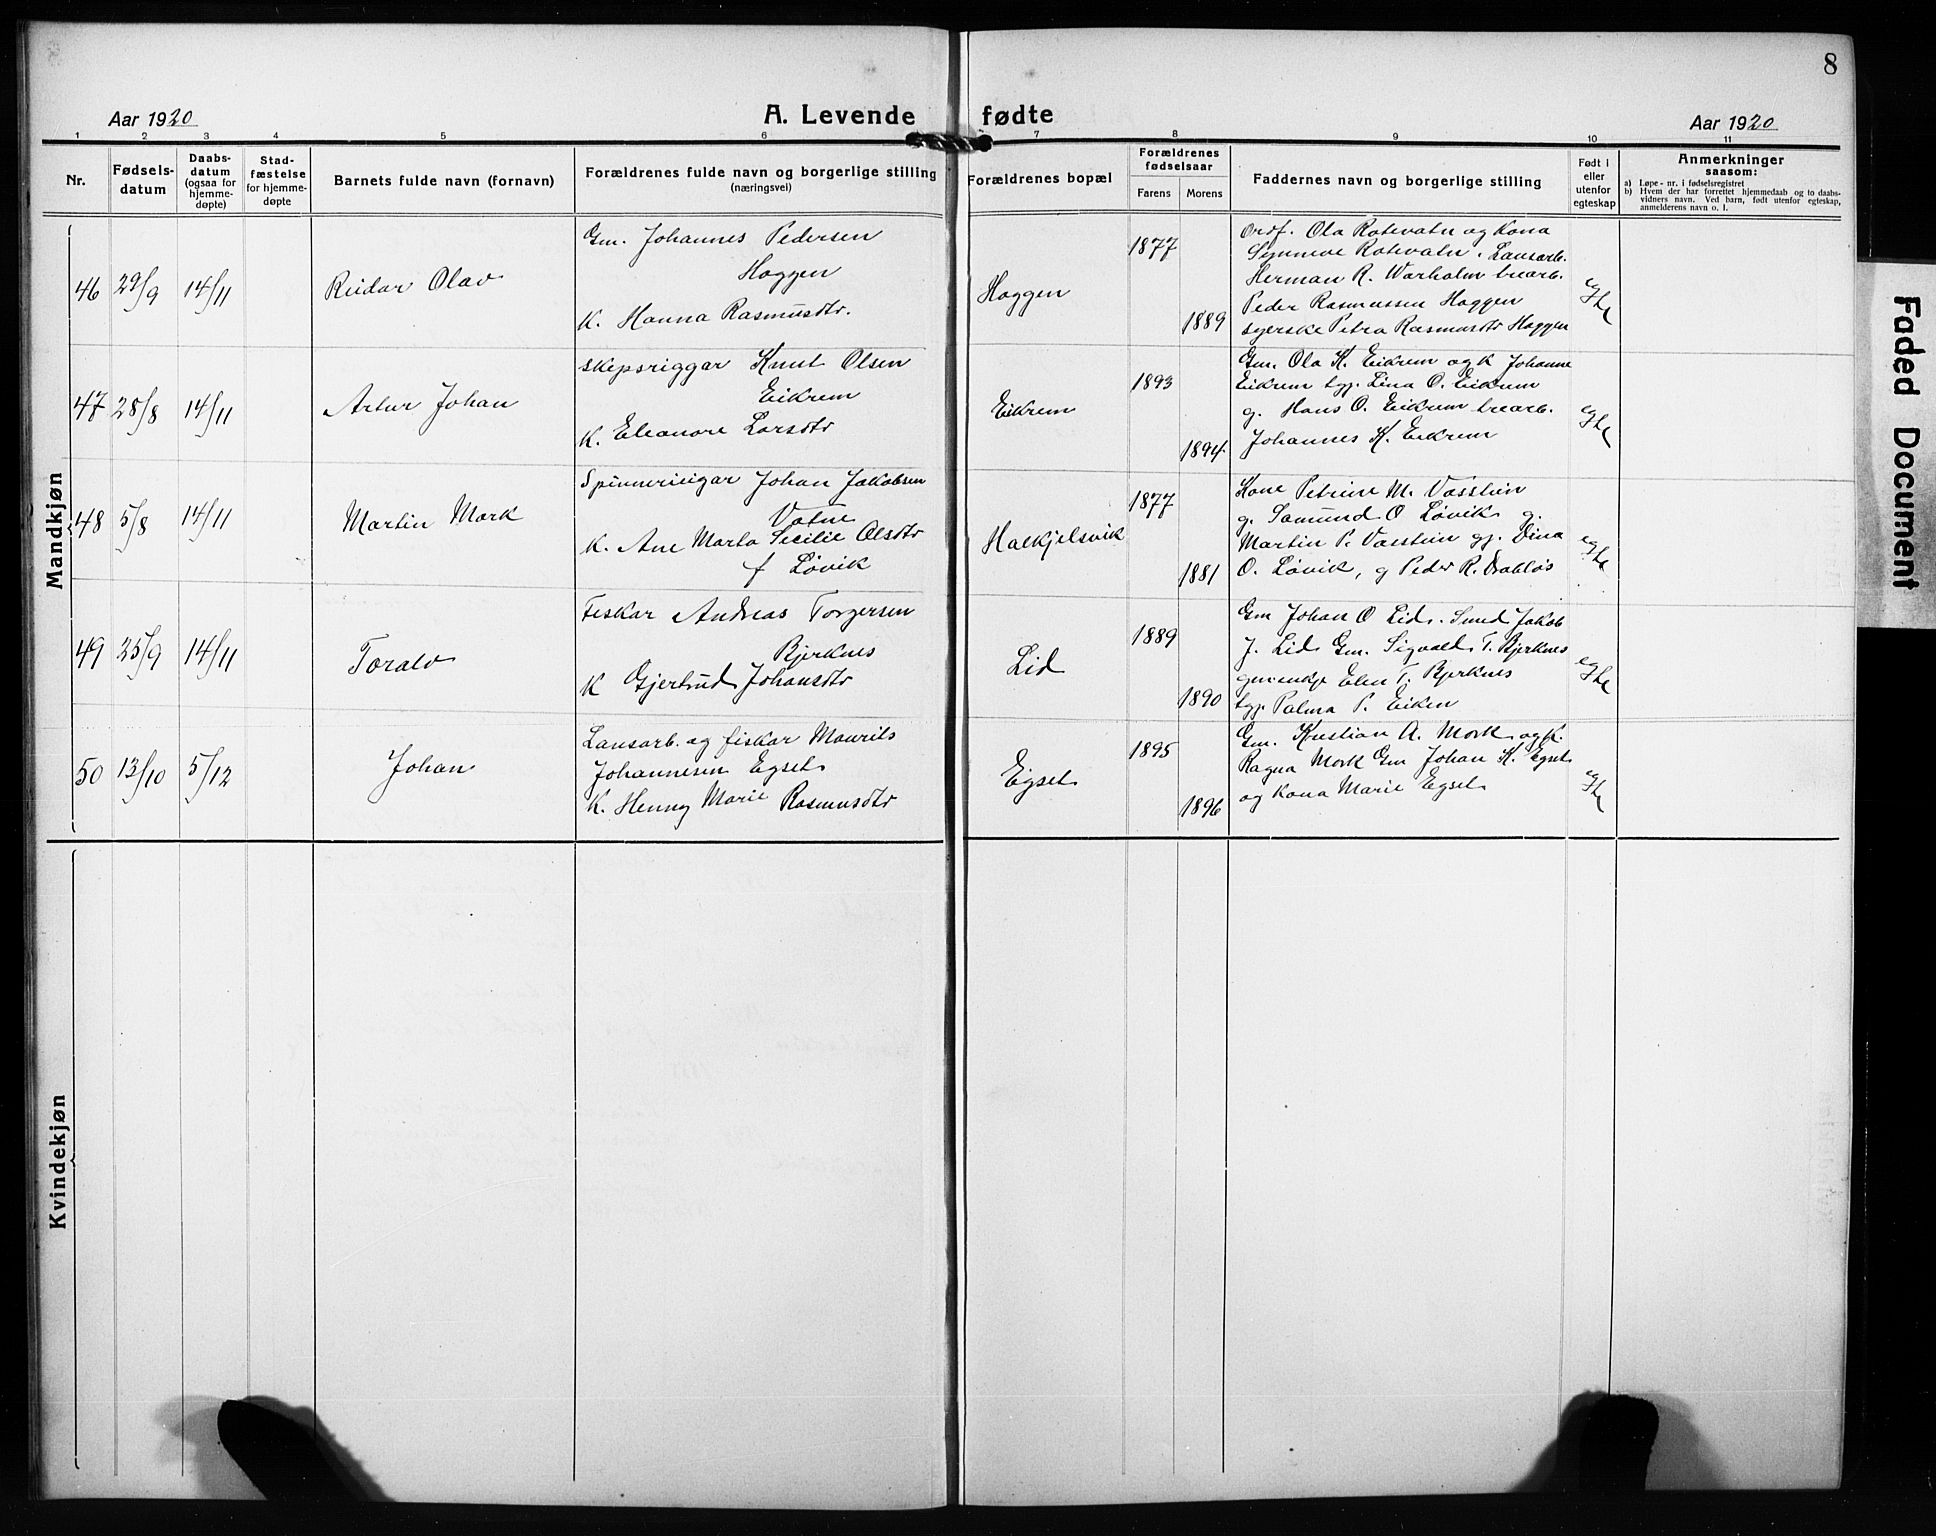 8
Aar 1920
A. Levende fødte
Aar 1920
1 2 3 4 5 6 7 8 9 10 11
Nr.
Fødsels-
datum
Daabs-
datum
(ogsaa for
hjemme-
døpte)
Stad-
fæstelse
for hjemme-
døpte
Barnets fulde navn (fornavn)
Forældrenes fulde navn og borgerlige stilling
(næringsvei)
Forældrenes bopæl
Forældrenes
fødselsaar
Farens Morens
Faddernes navn og borgerlige stilling
Født i
eller
utenfor
egteskap
Anmerkninger
saasom:
a) Løpe-nr. i fødselsregistret
b) Hvem der har forrettet hjemmedaab og to daabs-
vidners navn. Ved barn, født utenfor egteskap,
anmelderens navn o. l.
Mandkjøn
46 29/9 14/11
Reidar Olav
Gm. Johannes Pedersen
Haggen
K. Hanna Rasmusdtr.
Haggen
1877
1889
Ordf. Ola Rotevatn og Kona
Synneve Rotevatn. Lausarb.
Herman R. Warholm trearb.
Peder Rasmussen Haggen
syerske Petra Rasmusdtr Haggen
egte
47 28/8 14/11
Artur Johan
Skipsriggar Knut Olsen
Eikrem
K. Eleanore Larsdtr
Eikrem
1893
1894
Gm. Ola K. Eikrem og K Johanne
Eikrem tgp. Lina O. Eikrem
g. Hans O. Eikrem trearb.
Johannes K. Eikrem
egte
48 5/8 14/11
Martin Mork
Spinnerieigar Johan Jakobsen
Vatne
K. Ane Marta Secilie Olsdtr
f Løvik
Halkjelsvik
1877
1881
Kone Petrine M. Vasstein
g. Samund O Løvik g.
Martin P. Vasstein gp. Dina
O. Løvik, g Peder R. Drabløs
egte
49 25/9 14/11
Toralv
Fiskar Andreas Torgersen
Bjerknes
K Gjertrud Johansdtr
Lid
1889
1890
Gm Johan O Lid. Smed Jakob
J. Lid Gm. Sigvald T. Bjerknes
Elen T. Bjerknes
tgp. Palma P. Eiken
egte
50 13/10 5/12
Johan
Lausarb. og fiskar Maurits
Johannesen Egset
K. Henny Marie Rasmusdtr
Egset
1895
1896
Gm. Kristian A. Mork og K.
Ragna Mork Gm Johan K. Egset
og Kona Marie Egset
egte
Kvindekjøn
Faded Document